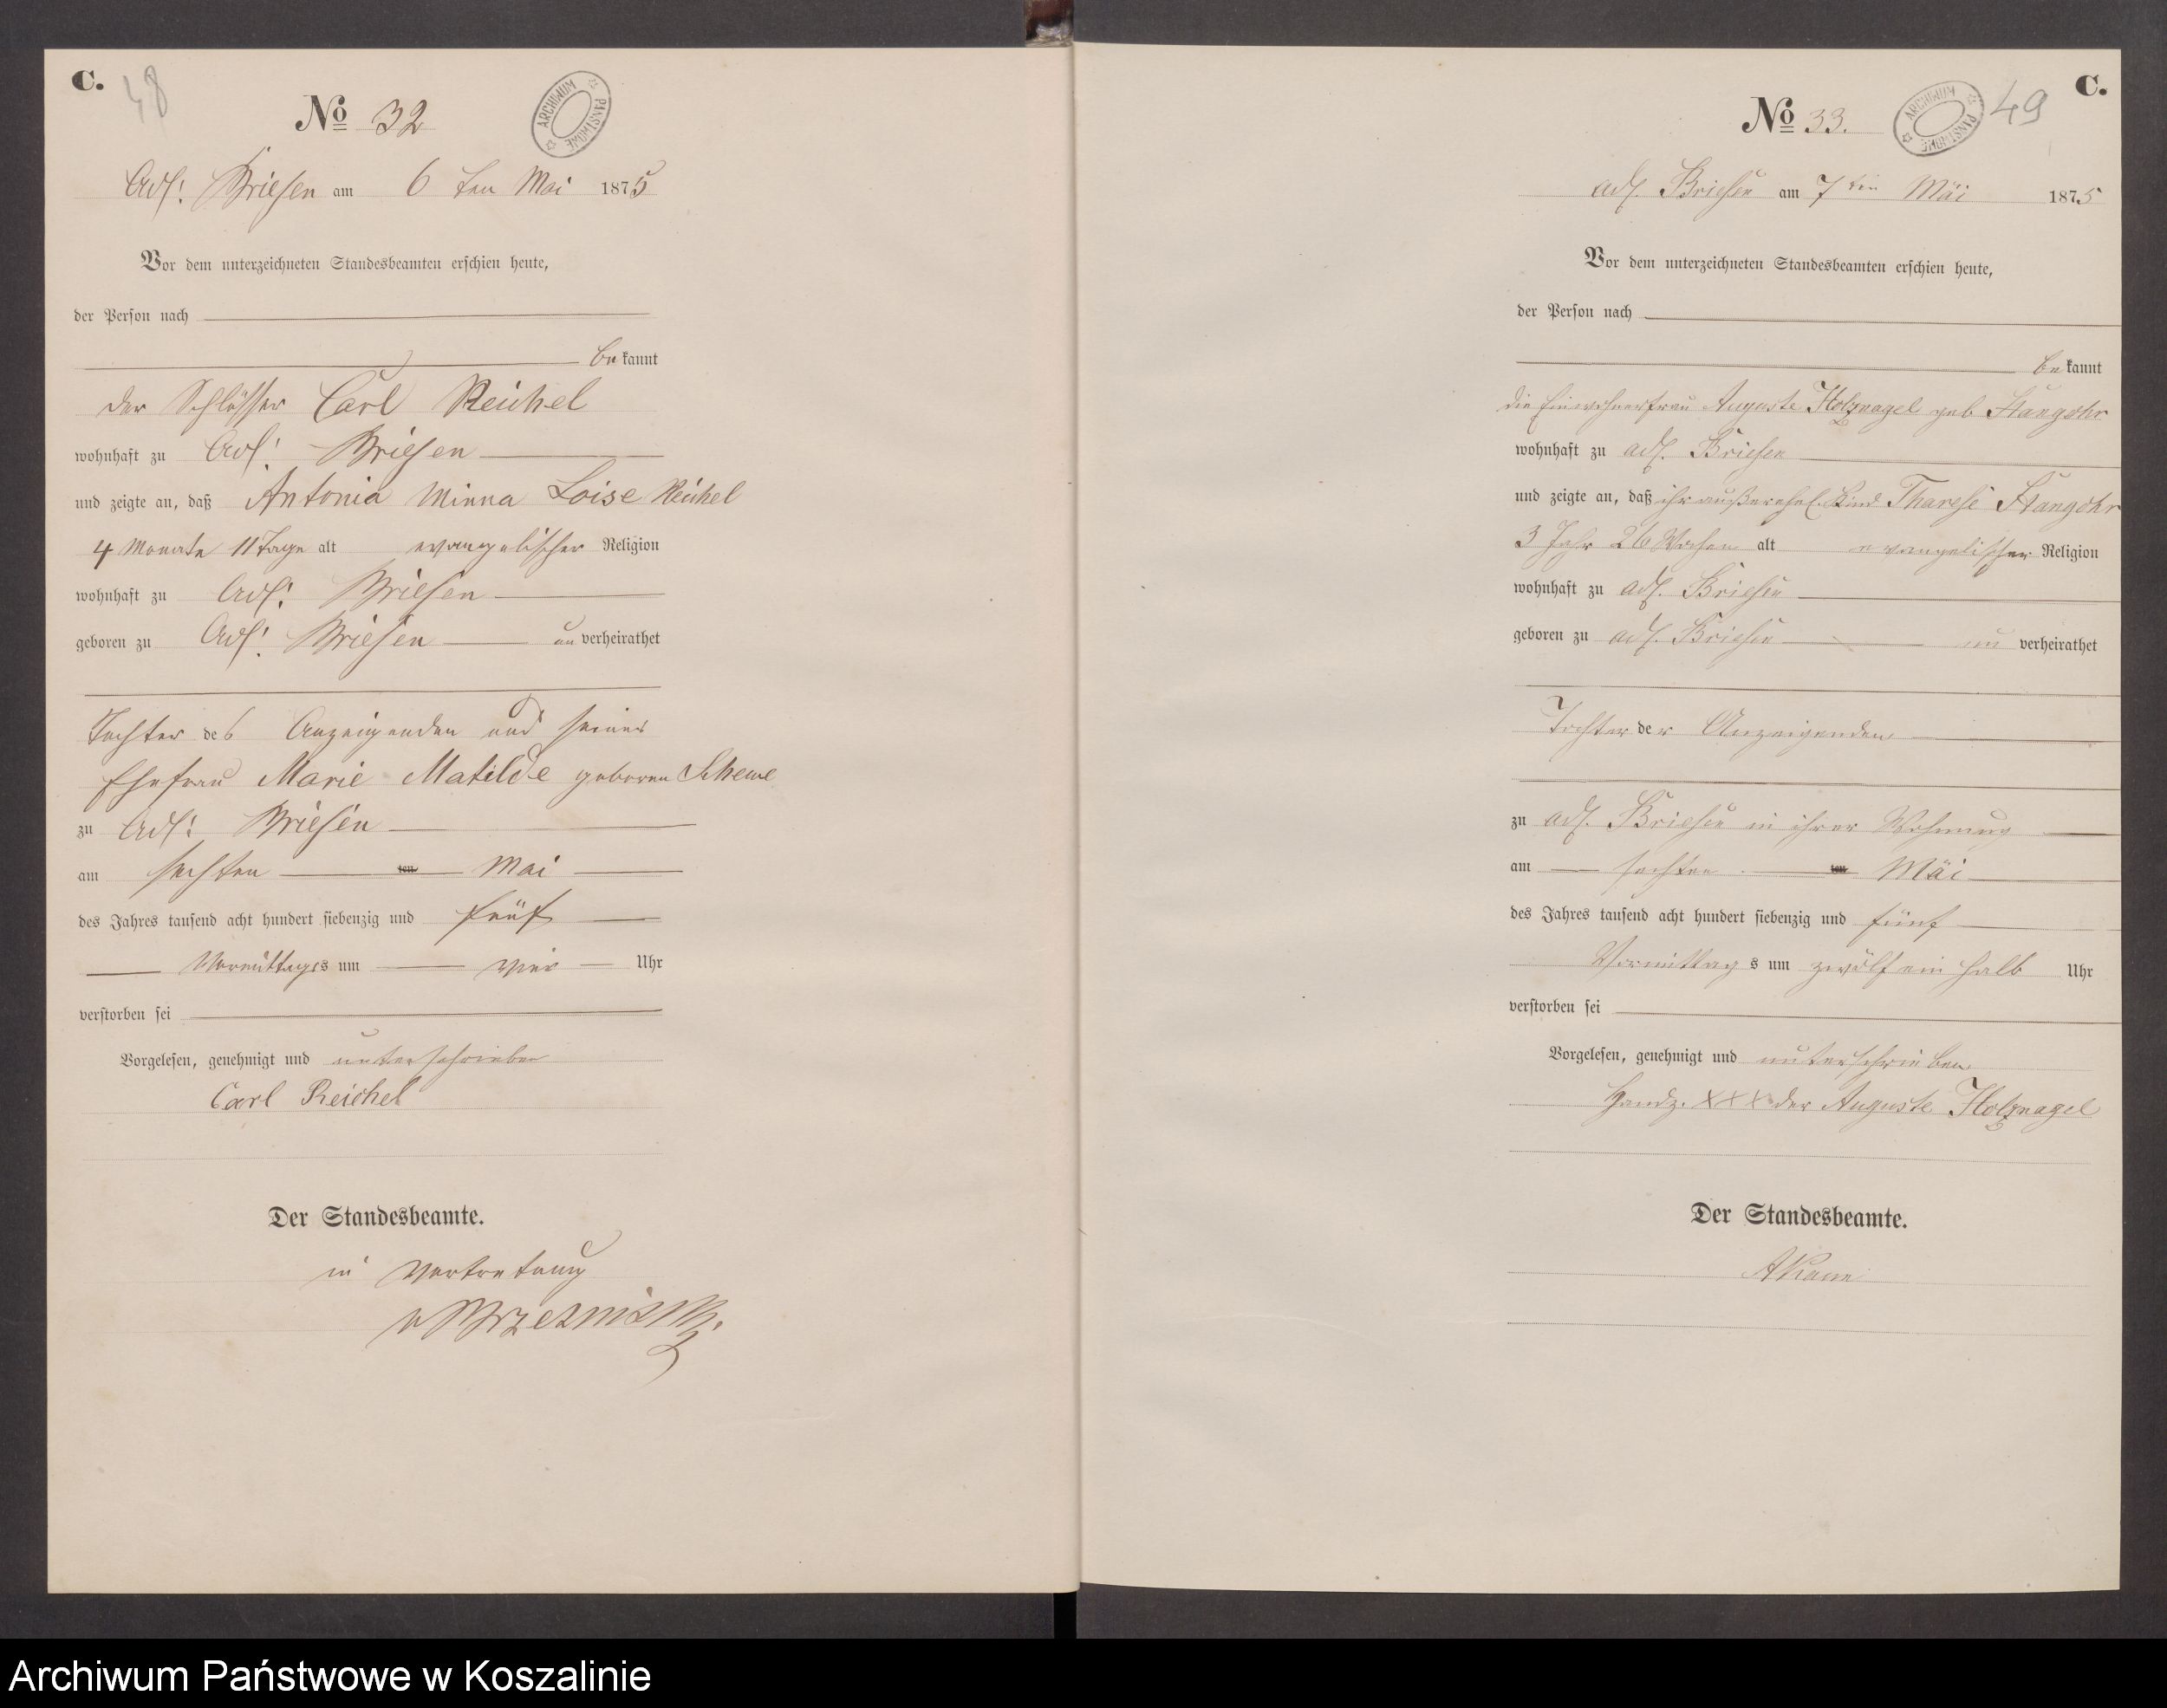 C.
48
No 32
ARCHIWUM PAŃSTWOWE
Adl: Briesen am 6 ten Mai 1875
Vor dem unterzeichneten Standesbeamten erschien heute,
der Person nach
bekannt
der Schlosser Carl Reichel
wohnhaft zu Adl: Briesen
und zeigte an, daß Antonia Minna Loise Reichel
4 Monate 11 Tage alt evangelischer Religion
wohnhaft zu Adl: Briesen
geboren zu Adl: Briesen unverheirathet
Tochter des Anzeigenden und seiner
Ehefrau Marie Matilde geboren
zu Adl: Briesen
am sechsten ten Mai
des Jahres tausend acht hundert siebenzig und fünf
Vormittags um vier Uhr
verstorben sei
Vorgelesen, genehmigt und unterschrieben
Carl Reichel
Der Standesbeamte.
in Vertretung
C.
49
No 33.
ARCHIWUM PAŃSTWOWE
adl. Briesen am 7 ten Mai 1875
Vor dem unterzeichneten Standesbeamten erschien heute,
der Person nach
bekannt
die Einwohnerfrau Auguste Holznagel geb Stangohr
wohnhaft zu adl. Briesen
und zeigte an, daß ihr außerehel. Kind Tharese Stangohr
3 Jahr 26 Wochen alt evangelischer Religion
wohnhaft zu adl. Briesen
geboren zu adl. Briesen un verheirathet
Tochter der Anzeigenden
zu adl. Briesen in ihrer Wohnung
am sechsten ten Mai
des Jahres tausend acht hundert siebenzig und fünf
Vormittags um zwölf ein halb Uhr
verstorben sei
Vorgelesen, genehmigt und unterschrieben
Handz. XXX der Auguste Holznagel
Der Standesbeamte.
Archiwum Państwowe w Koszalinie